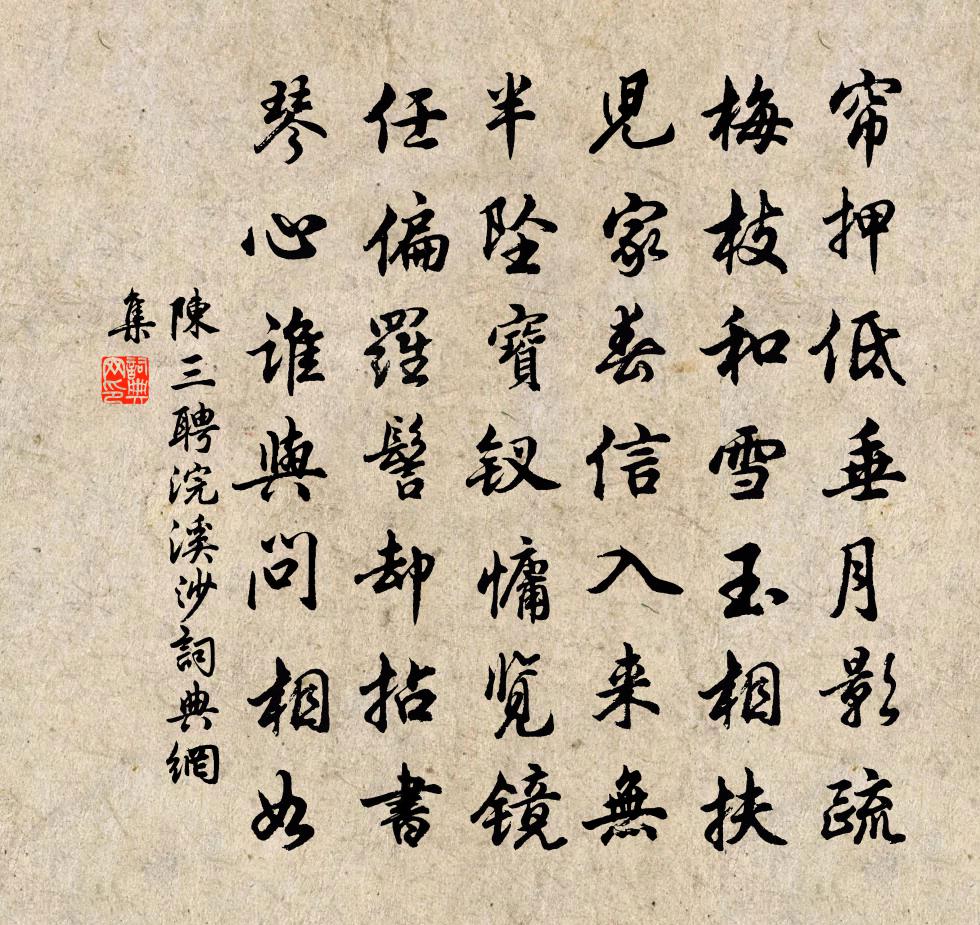 帘押低垂月影疏
梅枝和雪玉相扶
児家春信入来無
半坠寶釵慵览镜
任偏羅髻却拈書
琴心谁與問相如
陳三聘浣溪沙詞典網
集
詞典
网印